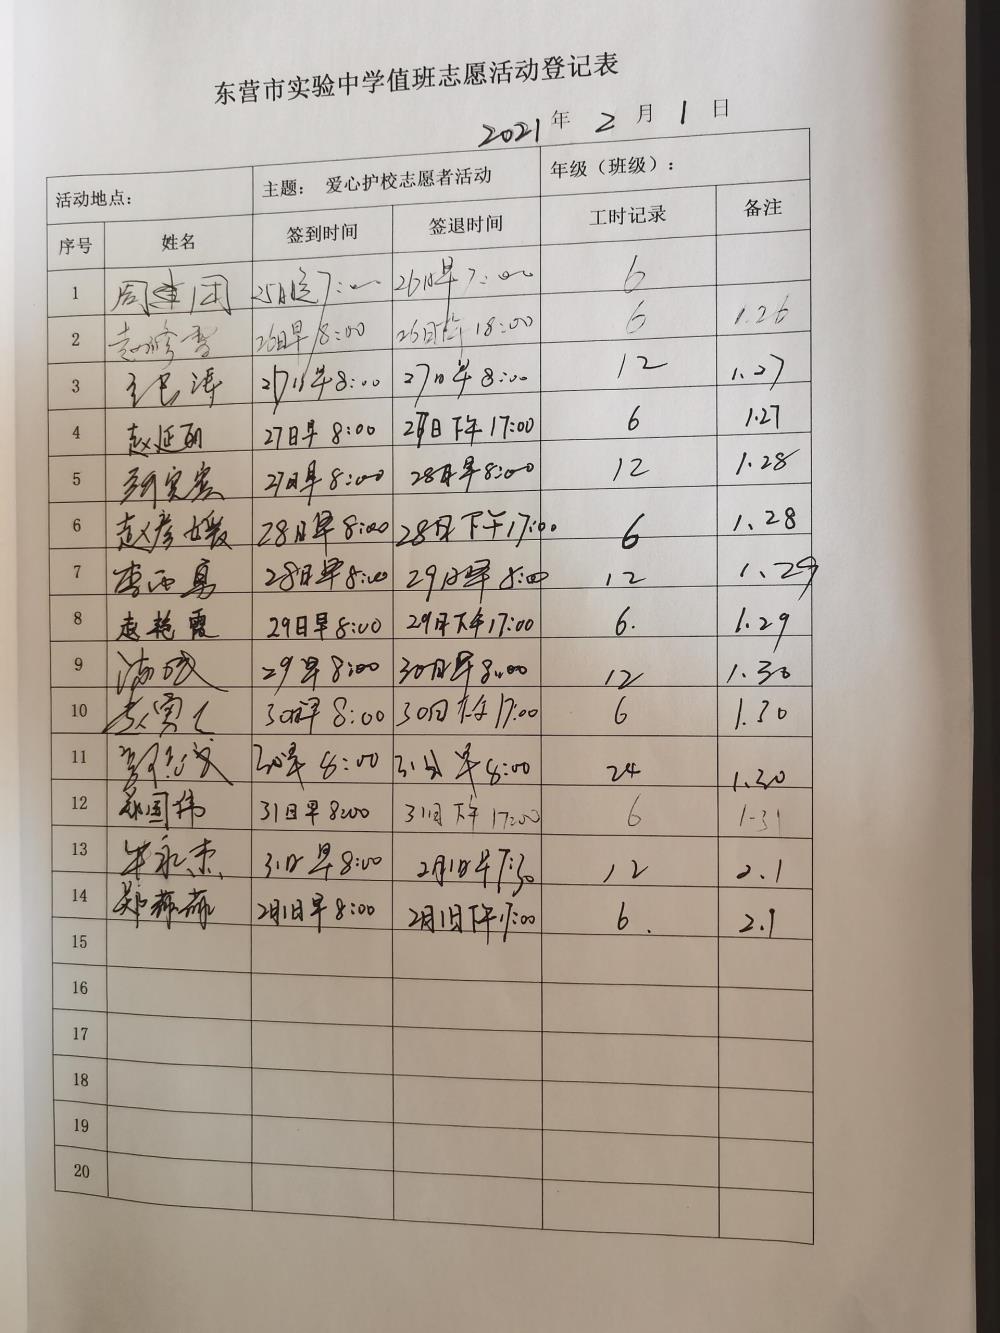 东营市实验中学值班志愿活动登记表
2021 年 2 月 1 日
活动地点： 主题： 爱心护校志愿者活动 年级（班级）：
序号 姓名 签到时间 签退时间 工时记录 备注
1 7:00 26日早7:00 6
2 26日早8:00 26日下午18:00 6 1.26
3 27日早8:00 27日早8:00 12 1.27
4 27日早8:00 日下午17:00 6 1.27
5 27日早8:00 28日早8:00 12 1.28
6 赵彦媛 28日早8:00 28日下午17:00 6 1.28
7 28日早8:00 29日早8:00 12 1.29
8 赵艳霞 29日早8:00 29日下午17:00 6. 1.29
9 29早8:00 30日早8:00 12 1.30
10 30日早8:00 30日下午17:00 6 1.30
11 8:00 31日早8:00 24 1.30
12 31日早8:00 31日下午17:00 6 1-31
13 31日早8:00 2月1日早7:30 12 2.1
14 2月1日早8:00 2月1日下午17:00 6. 2.1
15
16
17
18
19
20